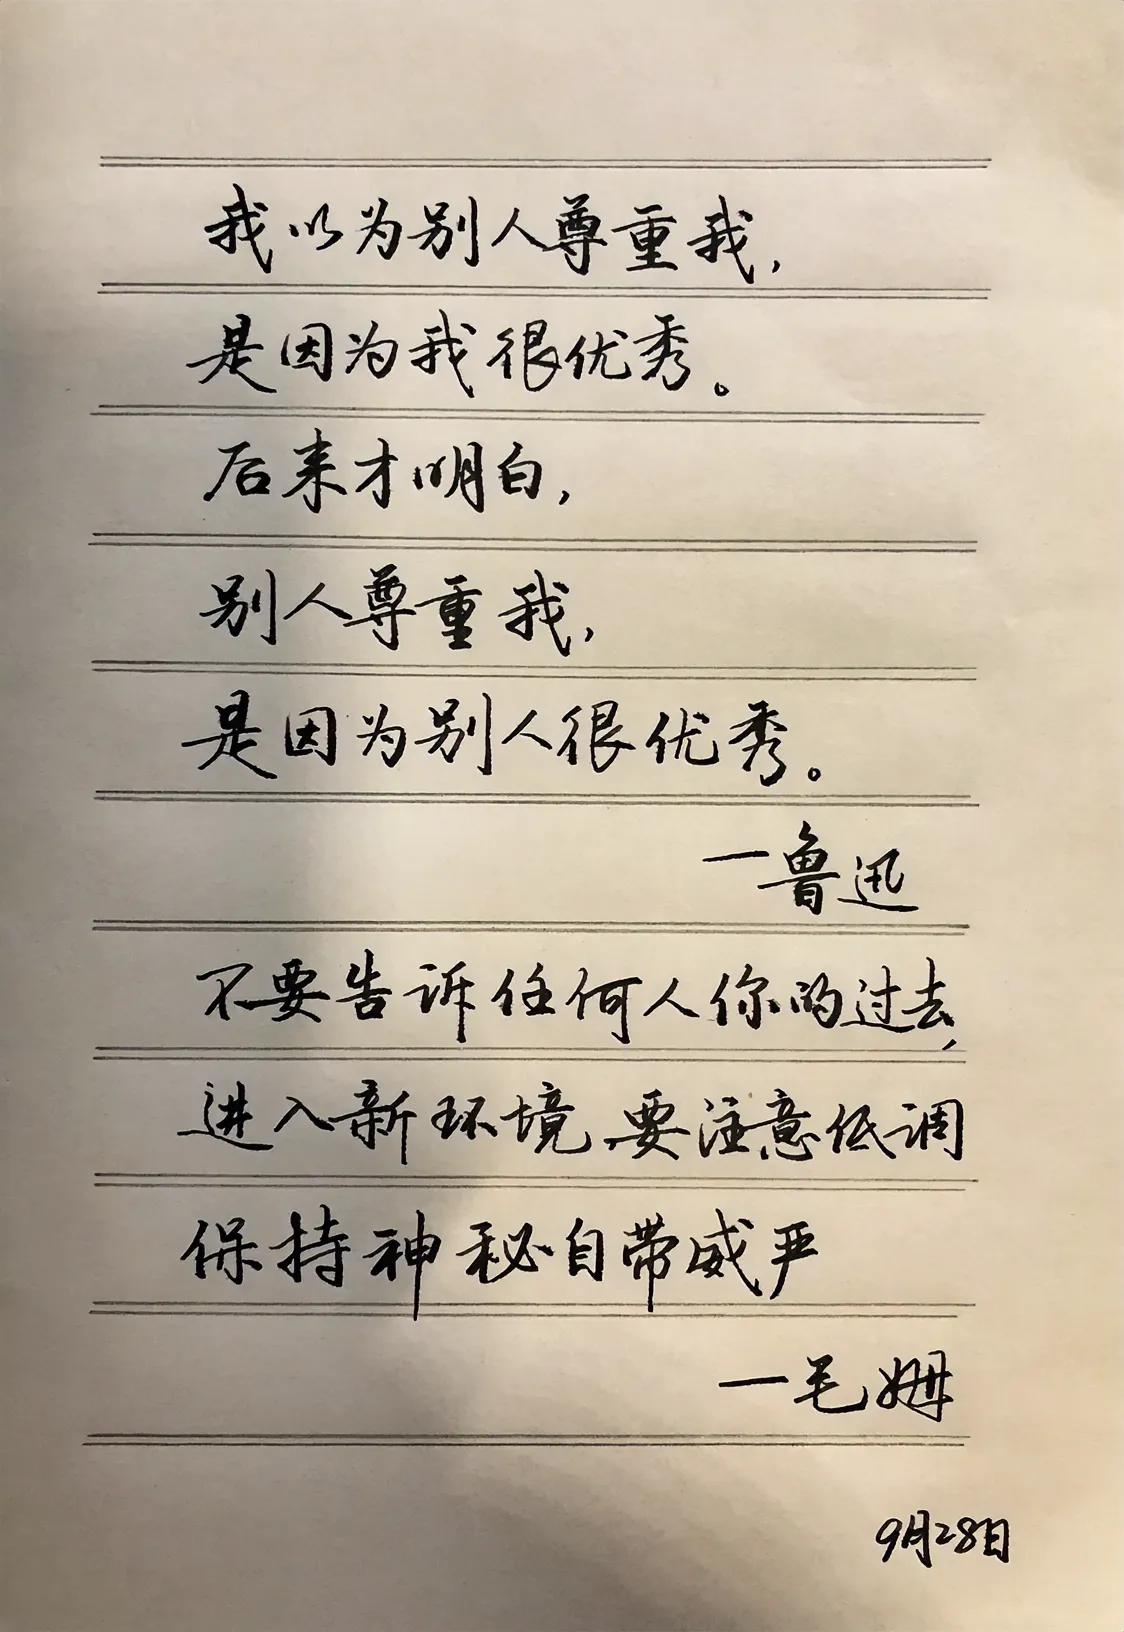 我以为别人尊重我，
是因为我很优秀。
后来才明白，
别人尊重我，
是因为别人很优秀。
一鲁迅
不要告诉任何人你的过去，
进入新环境，要注意低调
保持神秘自带威严
一毛姆
9月28日